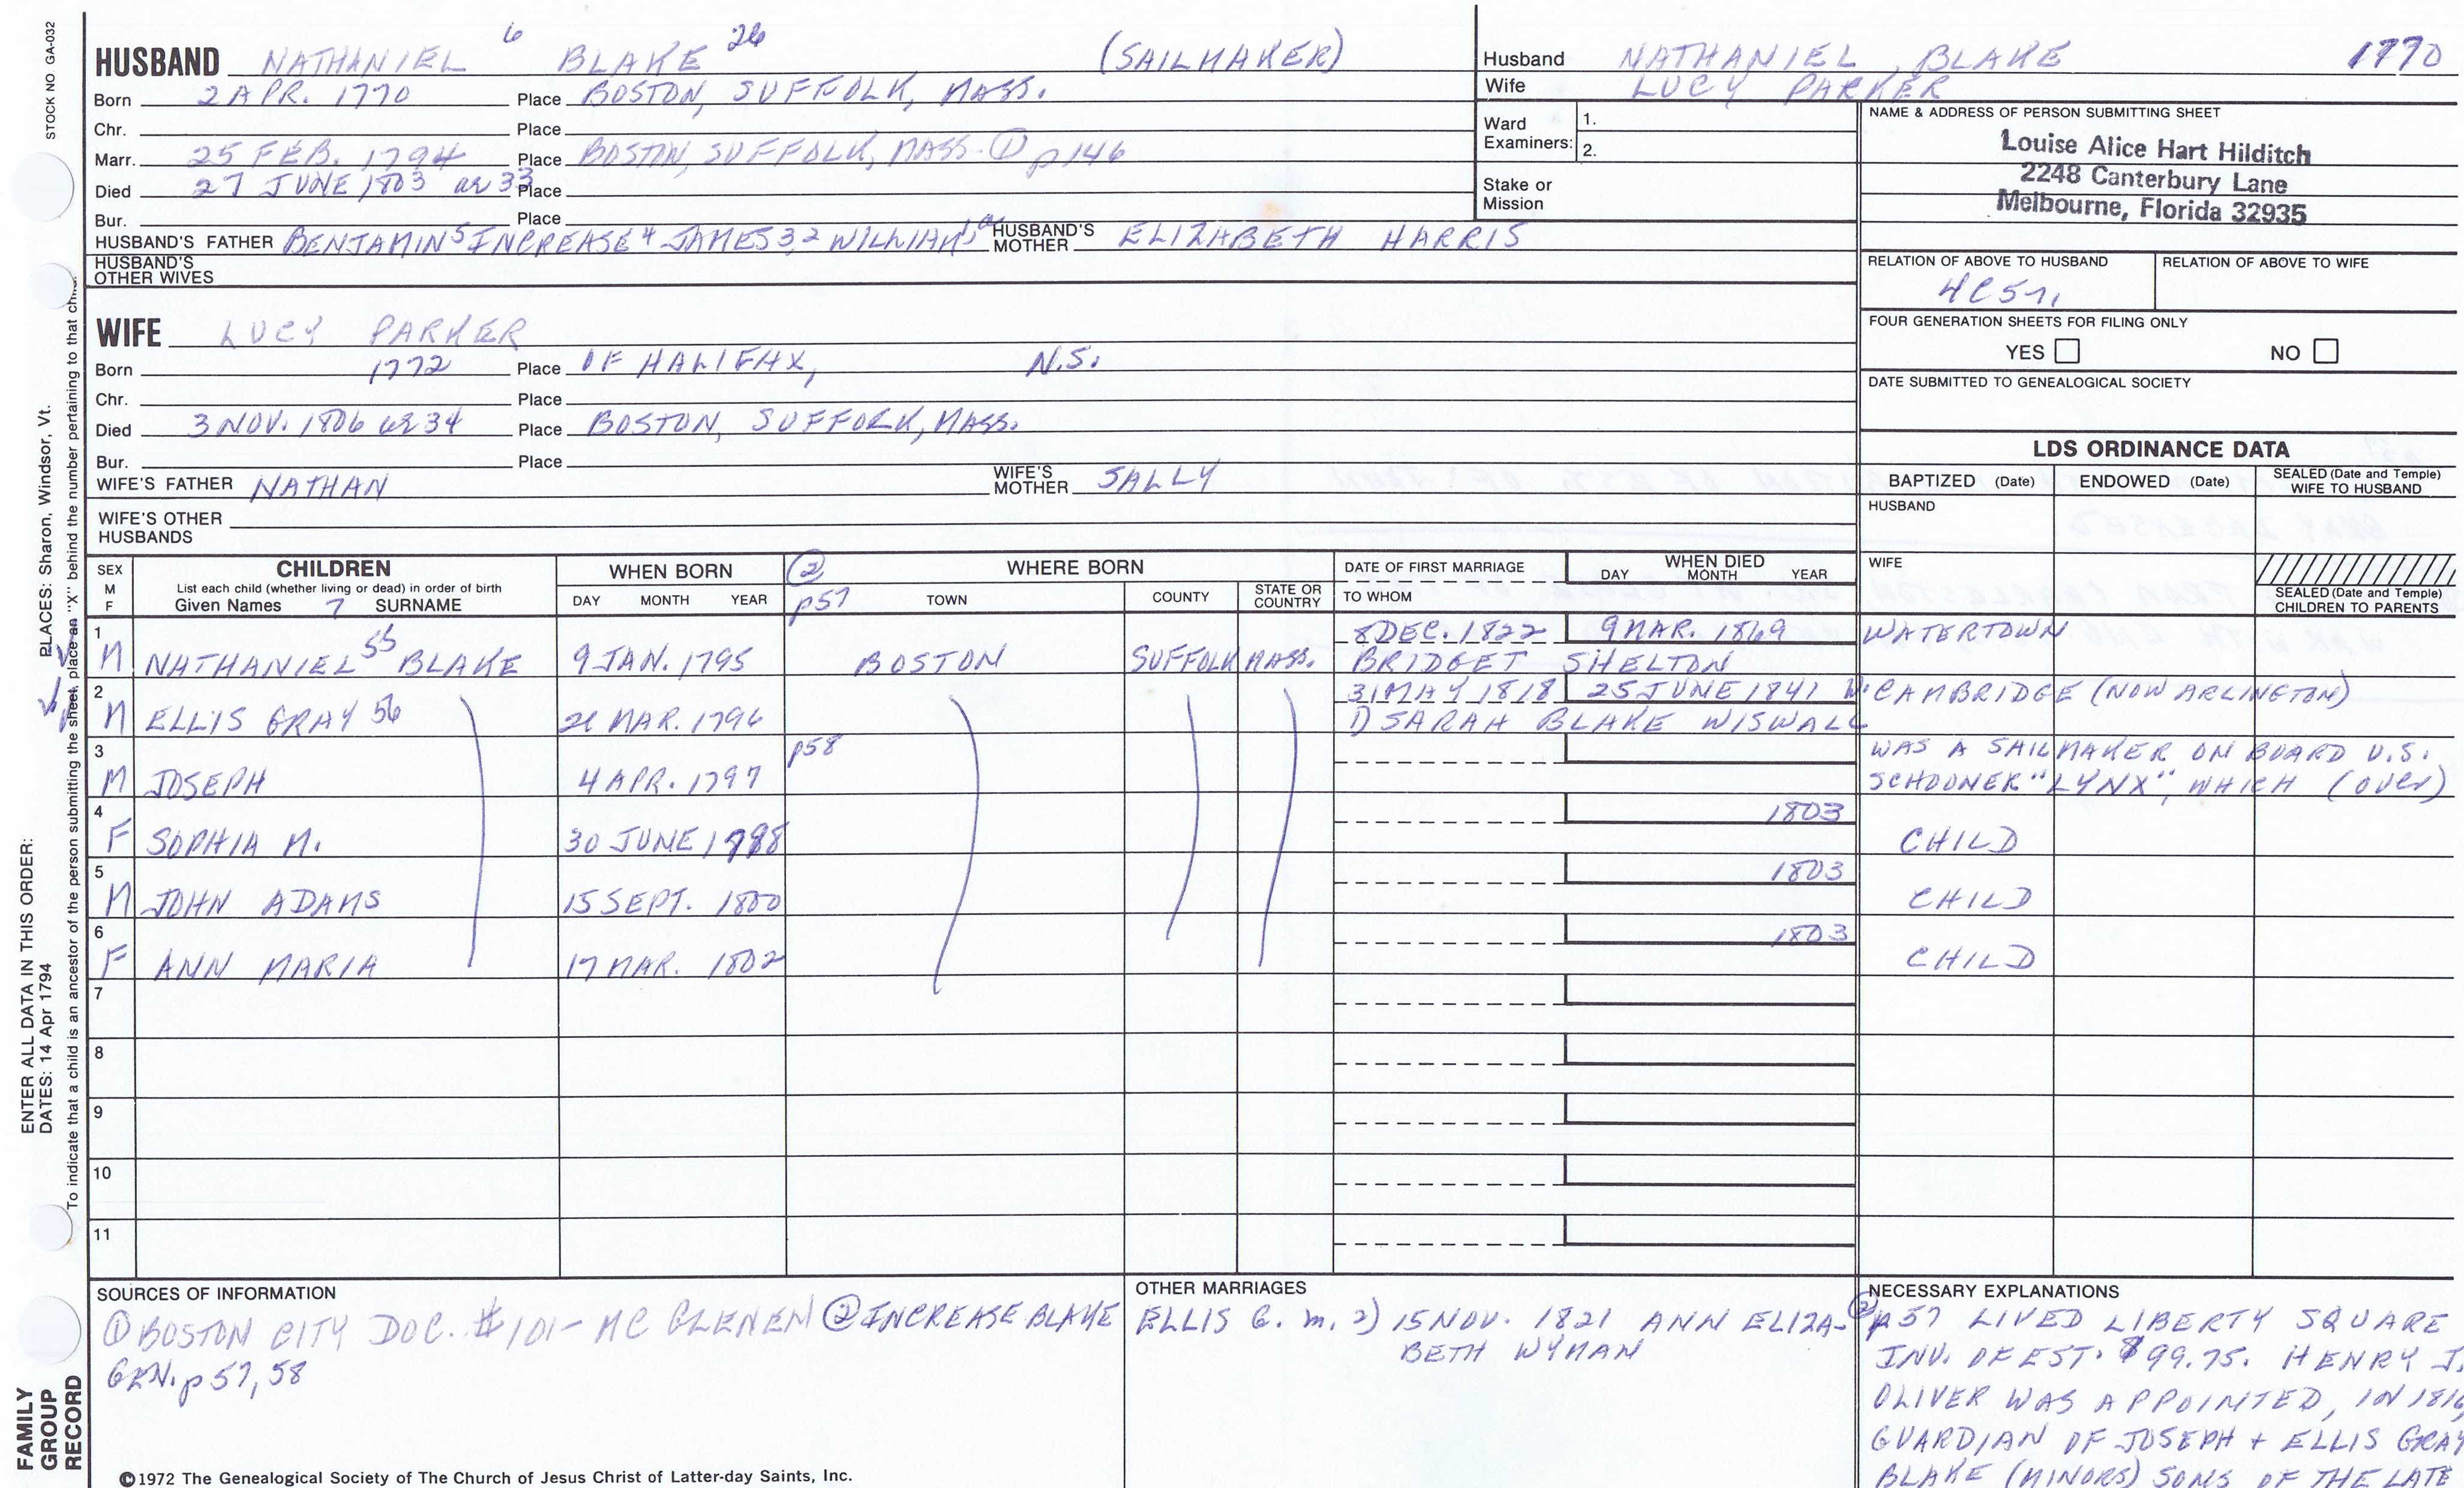 STOCK NO GA-032
HUSBAND NATHANIEL 6 BLAKE 26 (SAILMAKER)
Born 2 APR. 1770 Place BOSTON, SUFFOLK, MASS.
Chr. Place
Marr. 25 FEB. 1794 Place BOSTON, SUFFOLK, MASS. ① p146
Died 27 JUNE 1803 ae 33 Place
Bur. Place
HUSBAND'S FATHER BENJAMIN 5 INCREASE 4 JAMES 3,2 WILLIAM 1 HUSBAND'S MOTHER ELIZABETH HARRIS
HUSBAND'S OTHER WIVES
Husband NATHANIEL BLAKE 1770
Wife LUCY PARKER
Ward Examiners: 1.
2.
Stake or Mission
NAME & ADDRESS OF PERSON SUBMITTING SHEET
Louise Alice Hart Hilditch
2248 Canterbury Lane
Melbourne, Florida 32935
RELATION OF ABOVE TO HUSBAND RELATION OF ABOVE TO WIFE
4C5r
FOUR GENERATION SHEETS FOR FILING ONLY
YES NO
DATE SUBMITTED TO GENEALOGICAL SOCIETY
WIFE LUCY PARKER
Born 1772 Place OF HALIFAX, N.S.
Chr. Place
Died 3 NOV. 1806 ae 34 Place BOSTON, SUFFOLK, MASS.
Bur. Place
WIFE'S FATHER NATHAN WIFE'S MOTHER SALLY
WIFE'S OTHER HUSBANDS
LDS ORDINANCE DATA
BAPTIZED (Date) ENDOWED (Date) SEALED (Date and Temple) WIFE TO HUSBAND
HUSBAND
WIFE
SEALED (Date and Temple) CHILDREN TO PARENTS
SEX M F
CHILDREN
List each child (whether living or dead) in order of birth
Given Names 7 SURNAME
WHEN BORN
DAY MONTH YEAR
② p57
WHERE BORN
TOWN COUNTY STATE OR COUNTRY
DATE OF FIRST MARRIAGE
TO WHOM
WHEN DIED
DAY MONTH YEAR
1 8 DEC. 1822 9 MAR. 1869 WATERTOWN
M NATHANIEL 55 BLAKE 9 JAN. 1795 BOSTON SUFFOLK MASS. BRIDGET SHELTON
2 31 MAY 1818 25 JUNE 1841 W. CAMBRIDGE (NOW ARLINGTON)
M ELLIS GRAY 56 21 MAR. 1796 1) SARAH BLAKE WISWALL
3 p58 WAS A SAILMAKER ON BOARD U.S.
M JOSEPH 4 APR. 1797 SCHOONER "LYNX", WHICH (over)
4 1803
F SOPHIA M. 30 JUNE 1798 CHILD
5 1803
M JOHN ADAMS 15 SEPT. 1800 CHILD
6 1803
F ANN MARIA 17 MAR. 1802 CHILD
7
8
9
10
11
SOURCES OF INFORMATION
① BOSTON CITY DOC. #101 - MC GLENEN ② INCREASE BLAKE
GEN. p57, 58
OTHER MARRIAGES
ELLIS G. m. 2) 15 NOV. 1821 ANN ELIZA-
BETH WYMAN
NECESSARY EXPLANATIONS
② p57 LIVED LIBERTY SQUARE
INV. OF EST. $99.75. HENRY J.
OLIVER WAS APPOINTED, IN 1816
GUARDIAN OF JOSEPH + ELLIS GRAY
BLAKE (MINORS) SONS OF THE LATE
©1972 The Genealogical Society of The Church of Jesus Christ of Latter-day Saints, Inc.
ENTER ALL DATA IN THIS ORDER:
DATES: 14 Apr 1794 PLACES: Sharon, Windsor, Vt.
To indicate that a child is an ancestor of the person submitting the sheet, place an "X" behind the number pertaining to that child.
FAMILY
GROUP
RECORD